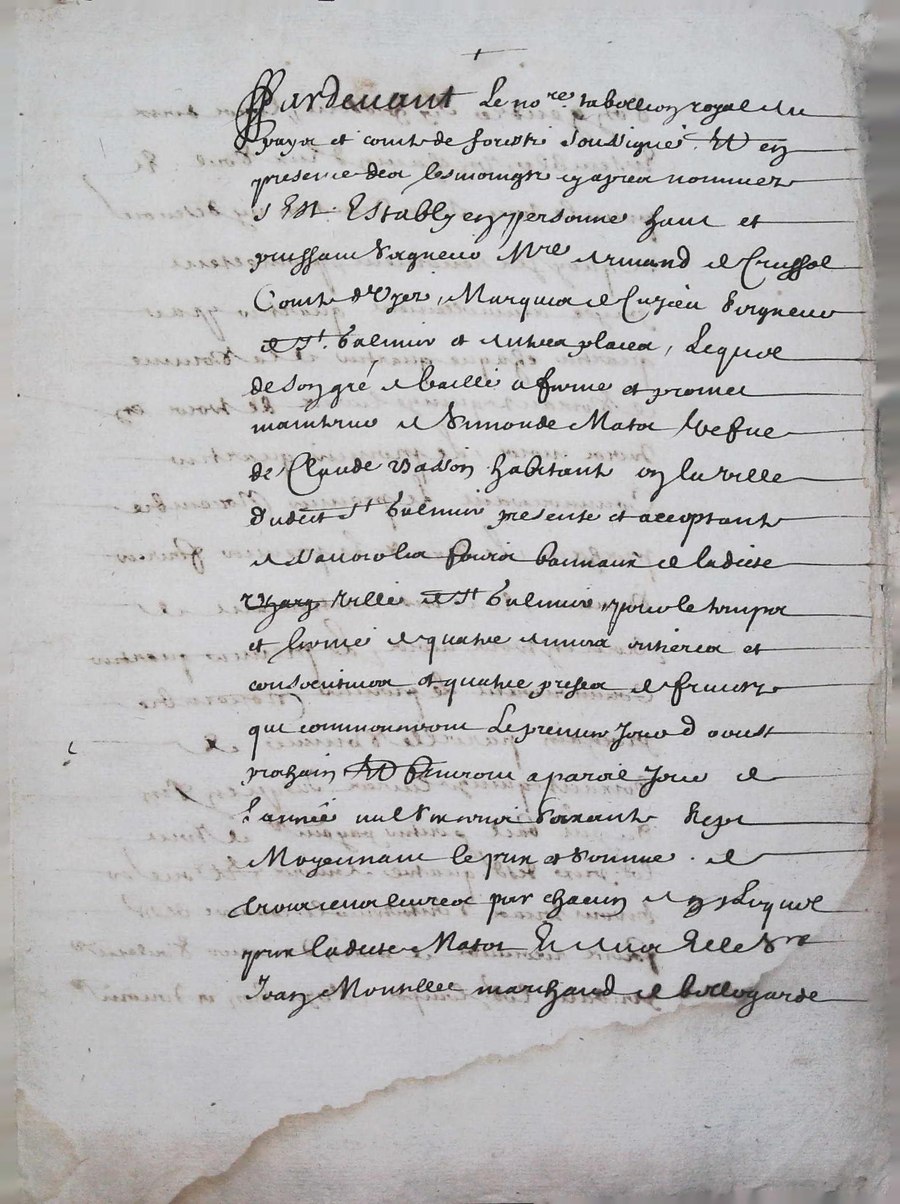 Pardevant Le no.re tabellion royal du
pays et comté de forestz soussigné Et en
presence des tesmoingtz cy apres nommez
s'Est Estably en personne haut et
puissant seigneur Mre Armand de Crussol
Comte d'Uzez, Marquis de Cuzieu seigneur
de St. Galmier et autres places, Lequel
de son gré a baillé a ferme et promet
maintenir a Simonde Matot Vefue
de Claude habitante en la ville
dudict St Galmier presente et acceptante
banaux de ladicte
ville de St Galmier, pour le temps
et terme de quatre années entieres et
consecutives et quatre prises de fruictz
qui commenceront Le premier Jour d'aoust
prochain Et finiront a pareil Jour de
l'année mil six cent soixante
Moyennant le prix et somme de
livres par chacun an Lequel
prix ladicte Matot
Jean marchand de bellegarde